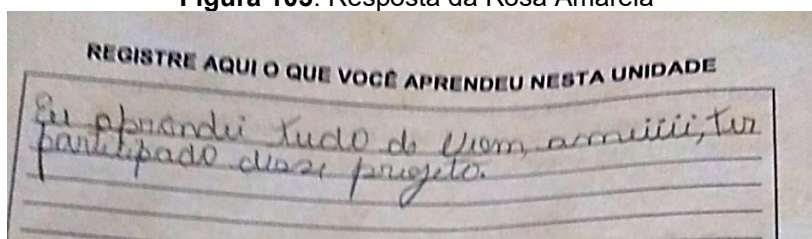 Figura 103: Resposta da Rosa Amarela
REGISTRE AQUI O QUE VOCÊ APRENDEU NESTA UNIDADE
Eu aprendi tudo de bom, ameiiii, ter
partipado desse projeto.